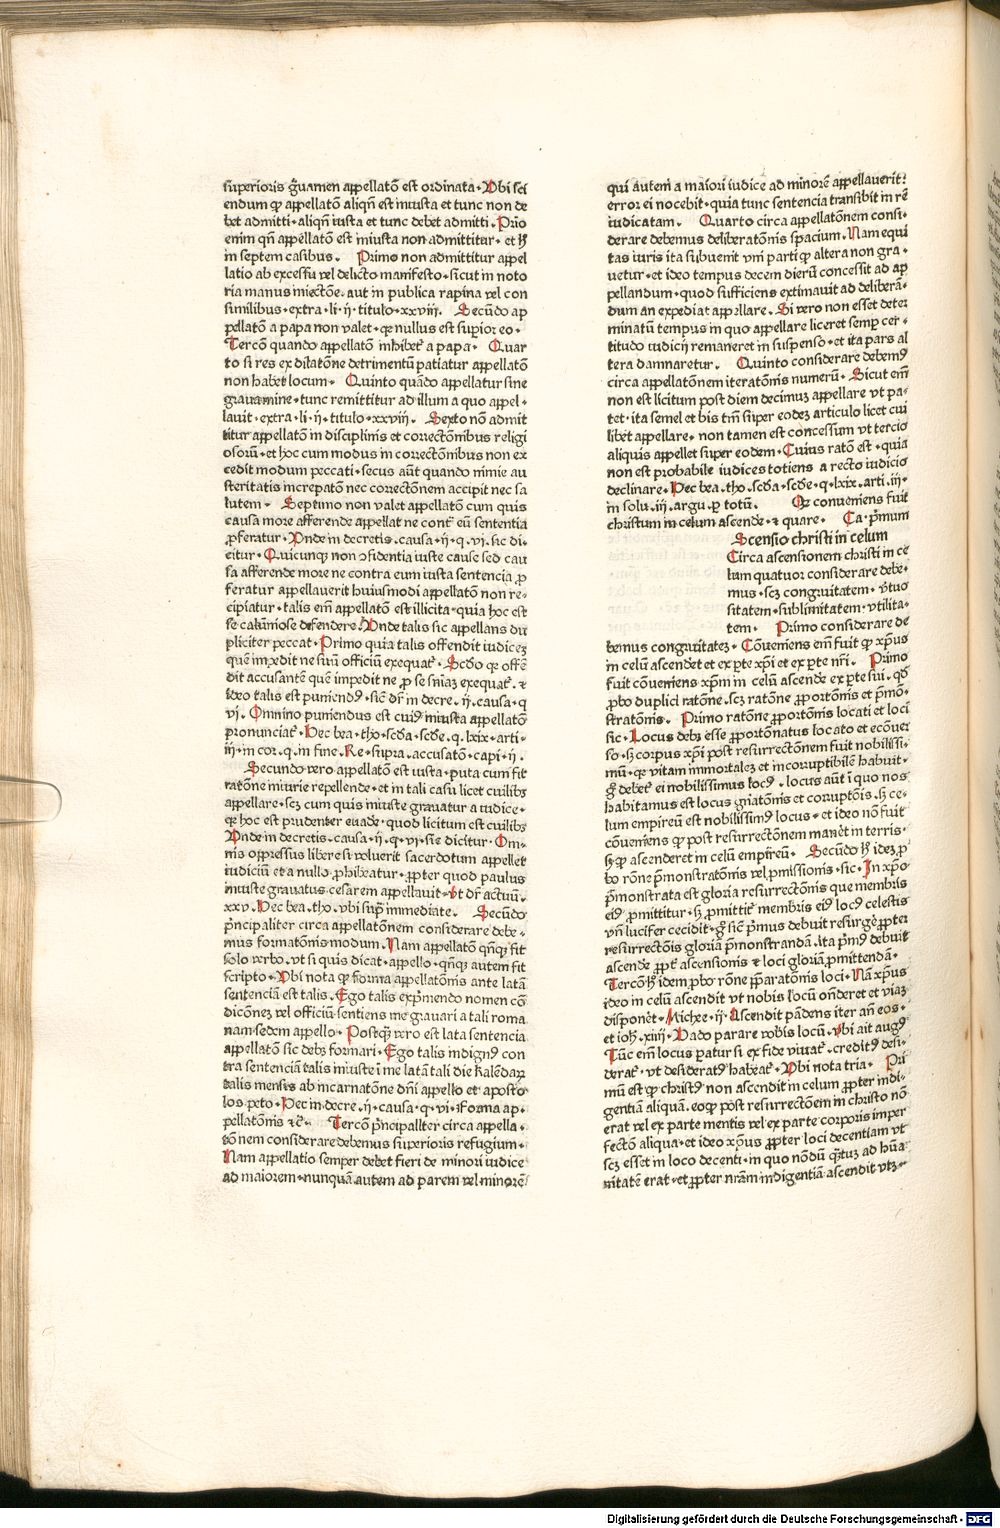 superioris g̃uamen appellatõ est ordinata · Vbi sci
endum ꝙ appellatõ aliqñ est iniusta et tunc non de
bet admitti · aliqñ iusta et tunc debet admitti · Prio
enim qñ appellatõ est iniusta non admittitur · et ħ
in septem casibus · Primo non admittitur appel
latio ab excessu vel delicto manifesto · sicut in noto
ria manus iniectõe · aut in publica rapina vel con
similibus · extra · li · ii · titulo · xxviii · Secũdo ap
pellatõ a papa non valet · qꝛ nullus est supior eo ·
Tercõ quando appellatõ inhibetᷣ a papa · Quar
to si res ex dilatõne detrimentũ patiatur appellatõ
non habet locum · Quinto quãdo appellatur sine
grauamine · tunc remittitur ad illum a quo appel ·
lauit · extra · li · ii · titulo · xxviii · Sexto nõ admit
titur appellatõ in disciplinis et correctõnibus religi
osorũ · et hoc cum modus in correctõnibus non ex
cedit modum peccati · secus aũt quando nimie au
steritatis increpatõ nec correctõnem accipit nec sa
lutem · Septimo non valet appellatõ cum quis
causa more afferende appellat ne contᷓ eũ sententia
ꝓferatur · Vnde in decretis · causa · ii · q · vi · sic di
citur · Quicunqꝫ non ↄfidentia iuste cause sed cau
sa afferende more ne contra eum iusta sentencia ꝓ
feratur appellauerit huiusmodi appellatõ non re ·
cipiatur · talis em̃ appellatõ est illicita · quia hoc est
se calũniose defendere · Vnde talis sic appellans du
pliciter peccat · Primo quia talis offendit iudicez
quẽ impedit ne suũ officiũ exequatᷣ · Scdõ qꝛ offẽ
dit accusantẽ quẽ impedit ne ꝓ se sniaz exequatᷣ · ⁊
ideo talis est puniendꝰ · sic̃ dr̃ in decre · ii · causa · q
vi · Omnino puniendus est cuiꝰ iniusta appellatõ
pronunciatᷣ · Hec bea · tho · scd̃a · scd̃e · q · lxix · arti ·
iii · in cor · q · in fine · Re · supra · accusatõ · capi · ii ·
Secundo vero appellatõ est iusta · puta cum fit
ratõne iniurie repellende · et in tali casu licet cuilibꝫ
appellare · scꝫ cum quis iniuste grauatur a iudice ·
qꝛ hoc est prudenter euade · quod licitum est cuilibꝫ
Vnde in decretis · causa · ii · q · vi · sic dicitur · Om ·
nis oppressus libere si voluerit sacerdotum appellet
iudiciũ et a nullo ꝓhibeatur · ꝓpter quod paulus
iniuste grauatus cesarem appellauit · vt dr̃ actuũ ·
xxv · Hec bea · tho · vbi supᷓ immediate · Secũdo
pᷣncipaliter circa appellatõnem considerare debe ·
mus formatõnis modum · Nam appellatõ qñqꝫ fit
solo verbo · vt si quis dicat · appello · qñqꝫ autem fit
scripto · Vbi nota ꝙ forma appellatõnis ante latã
sentenciã est talis · Ego talis expᷣmendo nomen cõ
dicõneꝫ vel officiũ sentiens me grauari a tali roma
nam sedem appello · Postqꝫ vero est lata sentencia
appellatõ sic debꝫ formari · Ego talis indignꝰ con
tra sentenciã talis iniuste ĩ me latã tali die kalẽdaꝝ
talis mensis ab incarnatõne dñi appello et aposto
los peto · Hec in decre · ii · causa · q · vi · Forma ap ·
pellatõnis ⁊c̃ · Tercõ pᷣncipaliter circa appella ·
tõnem considerare debemus superioris refugium ·
Nam appellatio semper debet fieri de minori iudice
ad maiorem · nunquã autem ad parem vel minorẽ
qui autem a maiori iudice ad minorẽ appellauerit ·
error ei nocebit · quia tunc sentencia transibit in rẽ
iudicatam · Quarto circa appellatõnem consi ·
derare debemus deliberatõnis spacium · Nam equi
tas iuris ita subuenit vni parti ꝙ altera non gra ·
uetur · et ideo tempus decem dierũ concessit ad ap
pellandum · quod sufficiens extimauit ad deliberã ·
dum an expediat appellare · Si vero non esset deter
minatũ tempus in quo appellare liceret semꝑ cer ·
titudo iudicii remaneret in suspenso · et ita pars al
tera damnaretur · Quinto considerare debemꝰ
circa appellatõnem iteratõnis numerũ · Sicut em̃
non est licitum post diem decimuꝫ appellare vt pa ·
tet · ita semel et bis tm̃ super eodeꝫ articulo licet cui
libet appellare · non tamen est concessum vt tercio
aliquis appellet super eodem · Cuius ratõ est · quia
non est probabile iudices totiens a recto iudicio
declinare · Hec bea · tho · scd̃a · scd̃e · q · lxix · arti · iii ·
in solu · iii · argu · ꝑ totũ · Qꝛ conueniens fuit
christum in celum ascende · ⁊ quare · Ca · pᷣmum
Scensio christi in celum
Circa ascensionem christi in ce
lum quatuor considerare debe ·
mus · scꝫ congruitatem · vᷣtuo
sitatem · sublimitatem · vtilita ·
tem · Primo considerare de
bemus congruitateꝫ · Cõueniens em̃ fuit ꝙ xp̃us
in celũ ascendet et ex ꝑte xp̃i et ex ꝑte nr̃i · Primo
fuit cõueniens xp̃m in celũ ascende ex ꝑte sui · qď
ꝓbo duplici ratõne · scꝫ ratõne ꝓportõnis et pᷣmõ ·
stratõnis · Primo ratõne ꝓportõnis locati et loci
sic · Locus debꝫ esse ꝓportõnatus locato et ecõuer
so · sꝫ corpus xp̃i post resurrectõnem fuit nobilissi ·
mũ · qꝛ vitam immortaleꝫ et incorruptibilẽ habuit ·
gͦ debetᷣ ei nobilissimus locꝰ · locus aũt ĩ quo nos
habitamus est locus gñatõnis et corruptõis · sꝫ ce ·
lum empireũ est nobilissimꝰ locus · et ideo nõ fuit
cõueniens ꝙ post resurrectõnem manẽt in terris ·
sꝫ ꝙ ascenderet in celũ empireũ · Secũdo ħ ideꝫ ꝓ
bo rõne pᷣmonstratõnis vel ꝓmissionis · sic · In xp̃o
pᷣmonstrata est gloria resurrectõnis que membris
eiꝰ ꝓmittitur · sꝫ ꝓmittitᷣ membris eiꝰ locꝰ celestis
vñ lucifer cecidit · gͦ sic̃ pᷣmus debuit resurgẽ ꝓpter
resurrectõis gloriã pᷣmonstrandã · ita pᷣmꝰ debuit
ascende ꝓpt̃ ascensionis ⁊ loci gloriã ꝓmittendã ·
Tercõ ħ idem ꝓbo rõne pᷣparatõnis loci · Nã xp̃us
ideo in celũ ascendit vt nobis locũ oñderet et viaꝫ
disponẽt · Michee · ii · Ascendit pãdens iter añ eos ·
et ioħ · xiiii · Vado parare vobis locũ · vbi ait augꝰ
Tũc em̃ locus ꝑatur si ex fide viuatᷣ · creditꝰ desi ·
deratᷣ · vt desideratꝰ habeatᷣ · Vbi nota tria · Pri
mũ est ꝙ christꝰ non ascendit in celum ꝓpter indi ·
gentiã aliquã · eoqꝫ post resurrectõem in christo nõ
erat vel ex parte mentis vel ex parte corporis imper
fectõ aliqua · et ideo xp̃us ꝓpter loci decentiam vt
scꝫ esset in loco decenti · in quo nõdũ qᷓtuꝫ ad hũa ·
nitatẽ erat · et ꝓpter nrãm indigentiã ascendit vtꝫ ·
Digitalisierung gefördert durch die Deutsche Forschungsgemeinschaft - DFG